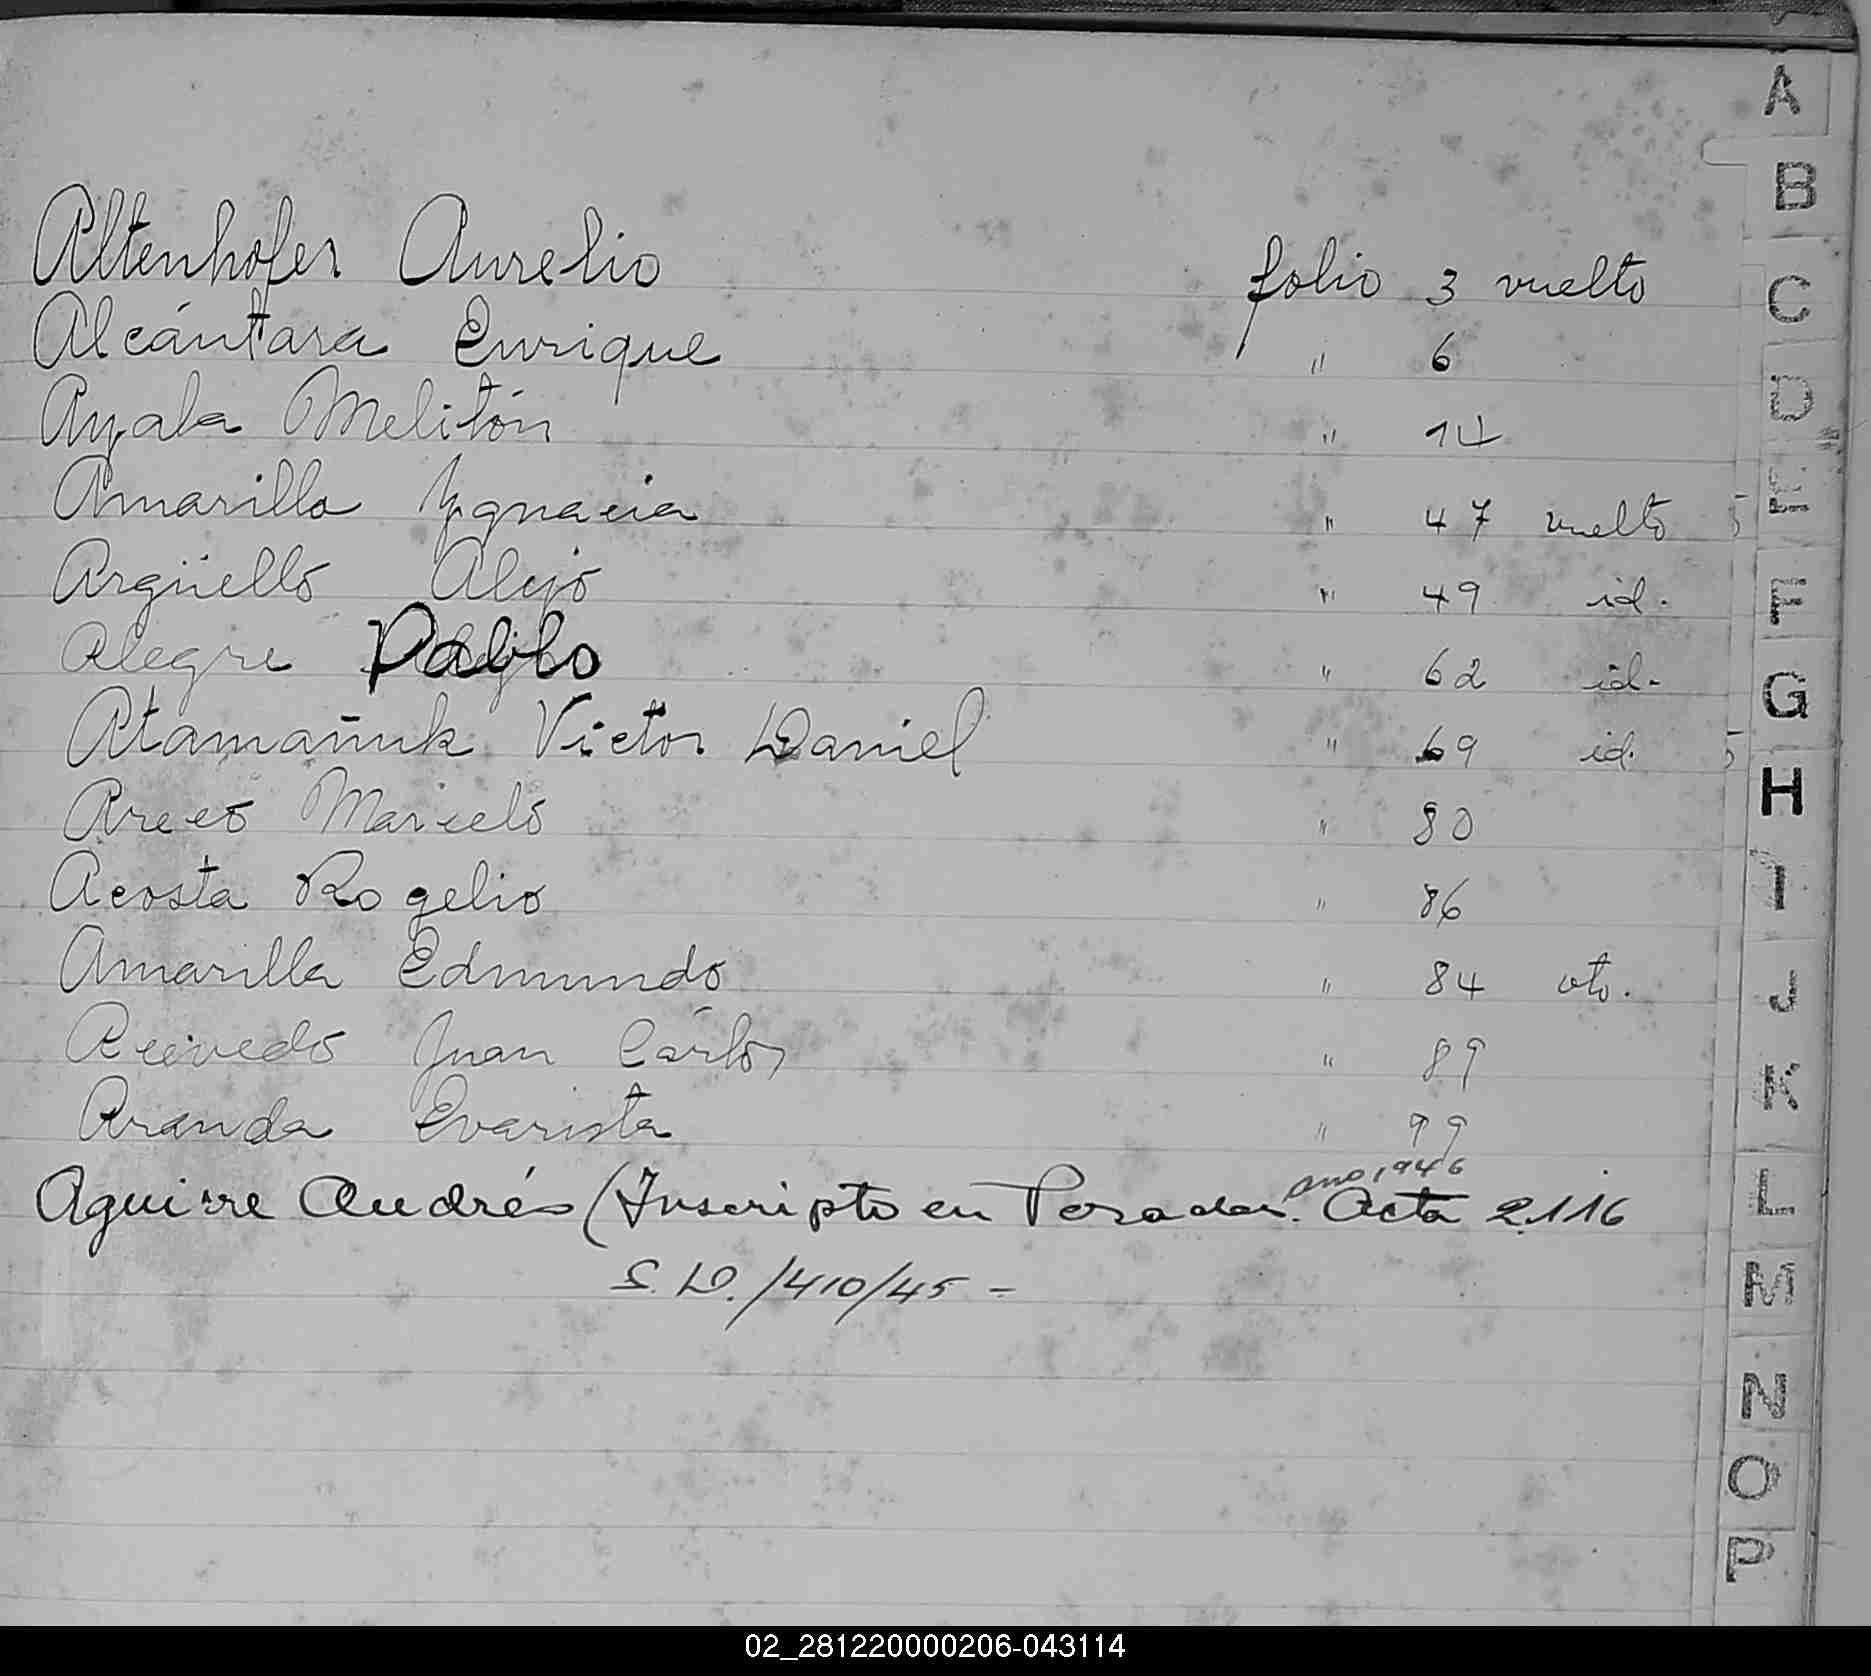 Altenhofer Aurelio folio 3 vuelto
Alcántara Enrique " 6
Ayala Melitón " 14
Amarilla Ygnacia " 47 vuelto
Argüello Alejo " 49 id.
Alegre Pablo " 62 id.
Atamañuk Victor Daniel " 69 id.
Areco Marcelo " 80
Acosta Rogelio " 86
Amarilla Edmundo " 84 vto.
Acevedo Juan Carlos " 89
Aranda Evarista " 99
año 1946
Aguirre Andrés (Inscripto en Posadas. Acta 2.116
S. D./410/45 -
A
B
C
D
E
F
G
H
I
J
K
L
M
N
O
P
02_281220000206-043114